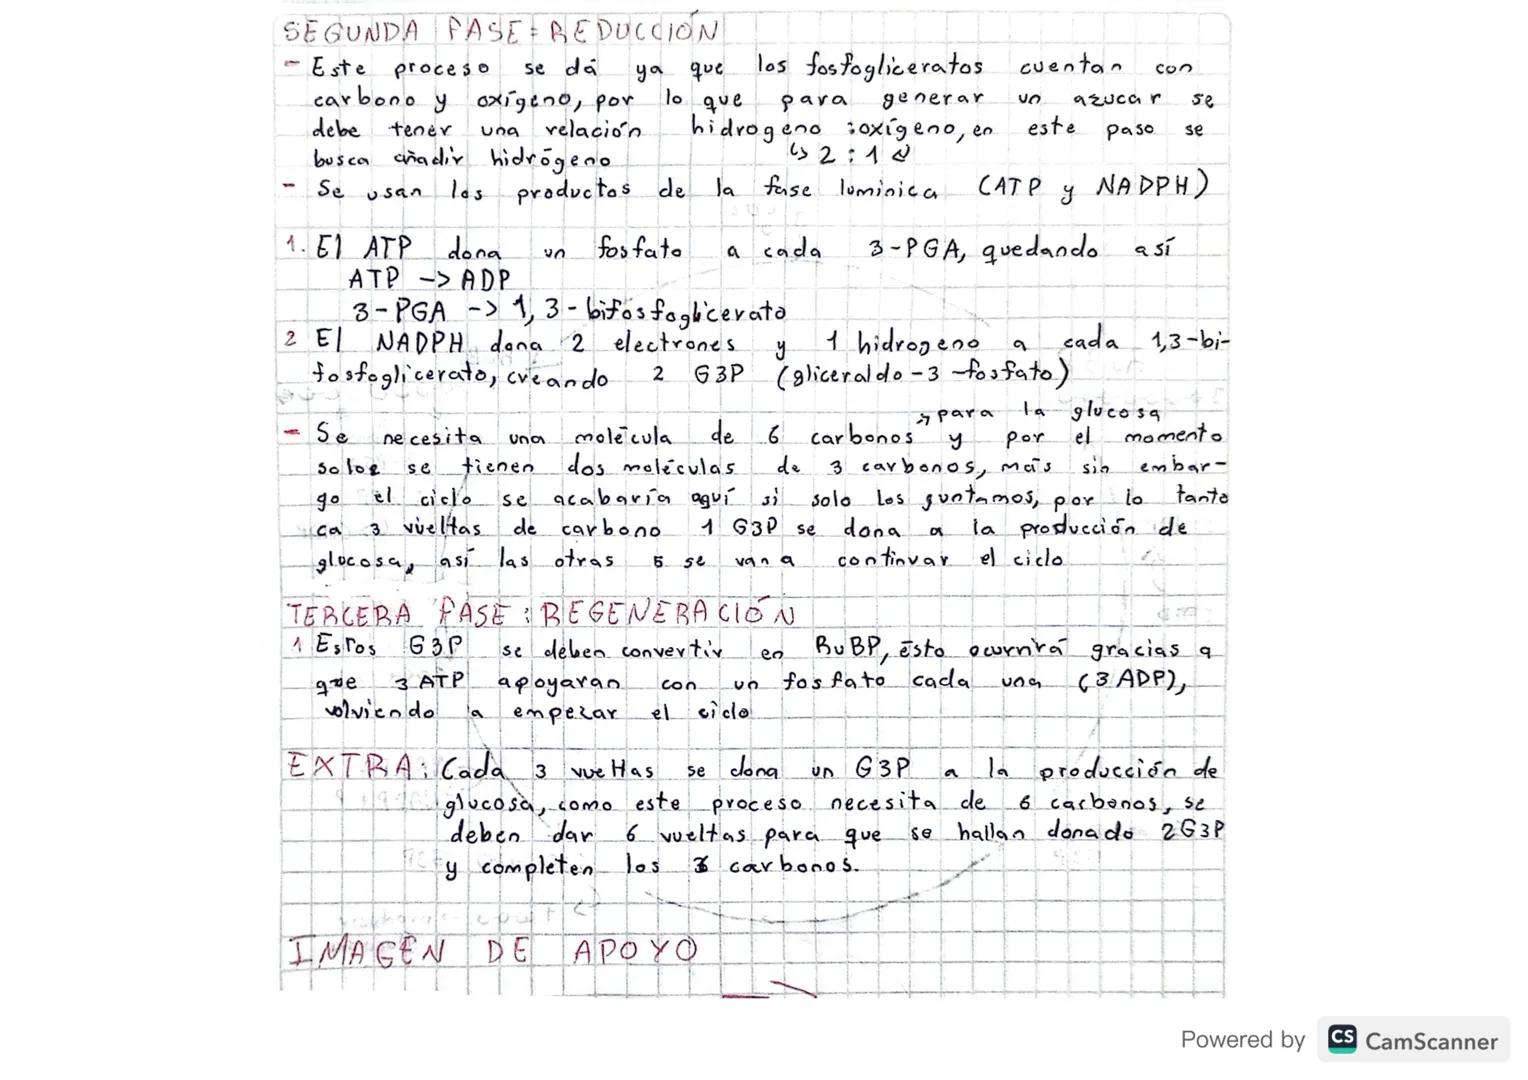 SEGUNDA FASE: REDUCCIÓN
- Este proceso se dá ya que los fosfogliceratos cuentan con
carbono y oxígeno, por lo que para generar un azucar se
debe tener una relación hidrogeno : oxígeno, en este paso se
busca añadir hidrógeno ↳ 2 : 1 ↲
- Se usan los productos de la fase luminica (ATP y NADPH)
1. El ATP dona un fosfato a cada 3-PGA, quedando así
ATP -> ADP
3-PGA -> 1, 3-bifosfoglicerato
2 El NADPH dona 2 electrones y 1 hidrogeno a cada 1,3-bi-
fosfoglicerato, creando 2 G3P (gliceraldo-3-fosfato)
↱ para la glucosa
- Se necesita una molécula de 6 carbonos y por el momento
solo se tienen dos moléculas de 3 carbonos, más sin embar-
go el ciclo se acabaría aquí si solo los juntamos, por lo tanto
ca 3 vueltas de carbono 1 G3P se dona a la producción de
glucosa, así las otras 5 se van a continuar el ciclo
TERCERA FASE: REGENERACIÓN
1 Estos G3P se deben convertir en RuBP, ésto ocurrirá gracias a
que 3 ATP apoyaran con un fosfato cada una (3 ADP),
volviendo a empezar el ciclo
EXTRA: Cada 3 vueltas se dona un G3P a la producción de
glucosa, como este proceso necesita de 6 carbonos, se
deben dar 6 vueltas para que se hallan donado 2G3P
y completen los carbonos.
IMAGEN DE APOYO
Powered by CS CamScanner